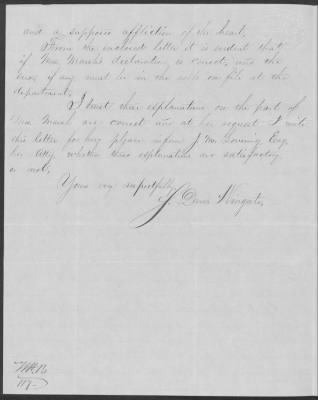 and a suppose affliction of the heart.
From the enclosed letter it is evident that
if Mrs Marsh's declaration is correct, and the
error if any must be in the rolls on file at the
department.
I trust these explanations on the part of
Mrs Marsh are correct and at her request I write
this letter for her, please inform J. M.
her Atty, whether these explanations are satisfactory
or not.
Yours very respectfully
J. Dana Wingate,
117